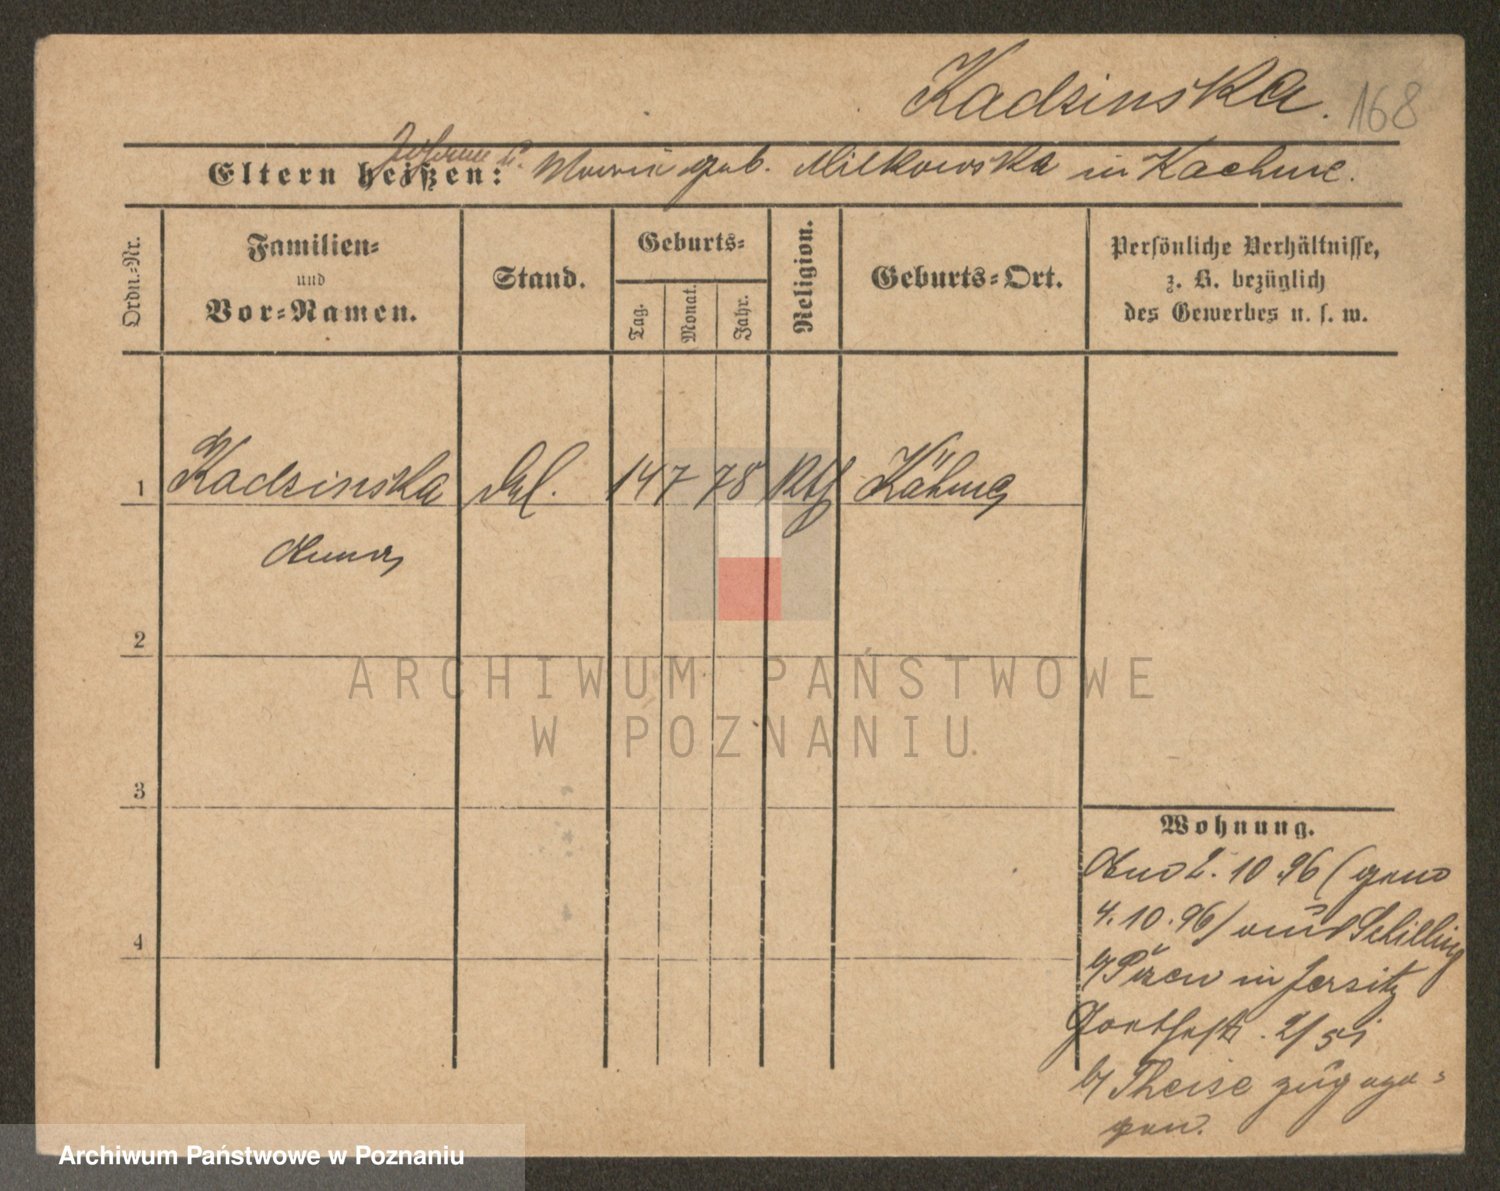 Kadzinska. 168
Johann u.
Eltern heißen: Marie geb. Milkowska in Kachme.
Ordn.-Nr.
Familien-
und
Vor-Namen.
Stand.
Geburts-
Tag.
Monat.
Jahr.
Religion.
Geburts-Ort.
Persönliche Verhältnisse,
z. B. bezüglich
des Gewerbes u. s. w.
1 Kadzinska 14 7 78 Kth Kähme
Anna
2
3
4
Wohnung.
2. 10. 96 (
4. 10. 96) aus Schilling
b/ in Jersitz
2/51
b/ Theise zugezo-
gen.
ARCHIWUM PAŃSTWOWE
W POZNANIU
Archiwum Państwowe w Poznaniu